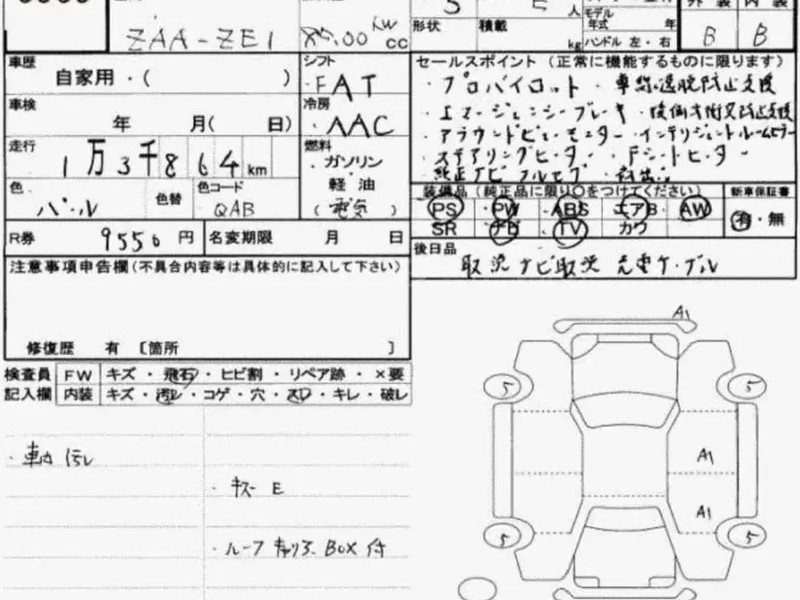 ZAA-ZE1
KW
85.00 cc
S
5 人
形状
積載
kg
モデル
年式 年
ハンドル 左・右
外装 内装
B B
車歴
自家用・( )
シフト
・FAT
セールスポイント (正常に機能するものに限ります)
・プロパイロット ・車線逸脱防止支援
車検
年 月( 日)
冷房
・AAC
・エマージェンシーブレーキ ・後側方衝突防止支援
・アラウンドビューモニター ・インテリジェントルームミラー
走行
1万3千864km
燃料
・ガソリン
・軽油
・(電気)
・ステアリングヒーター ・Fシートヒーター
・純正ナビ フルセグ
色
パール
色替
色コード
QAB
装備品(純正品に限り○をつけてください)
新車保証書
PS ・PW ・ABS ・エアB ・AW
SR ・ナビ ・TV ・カワ
有・無
R券 9550円
名変期限 月 日
後日品
取説 ナビ取説 充電ケーブル
注意事項申告欄(不具合内容等は具体的に記入して下さい)
修復歴 有 〔箇所 〕
検査員 FW キズ・飛石・ヒビ割・リペア跡・×要
記入欄 内装 キズ・汚レ・コゲ・穴・スレ・キレ・破レ
・車内汚レ
・キズー E
・ルーフキャリア BOX付
A1
5 5
A1
A1
5 5